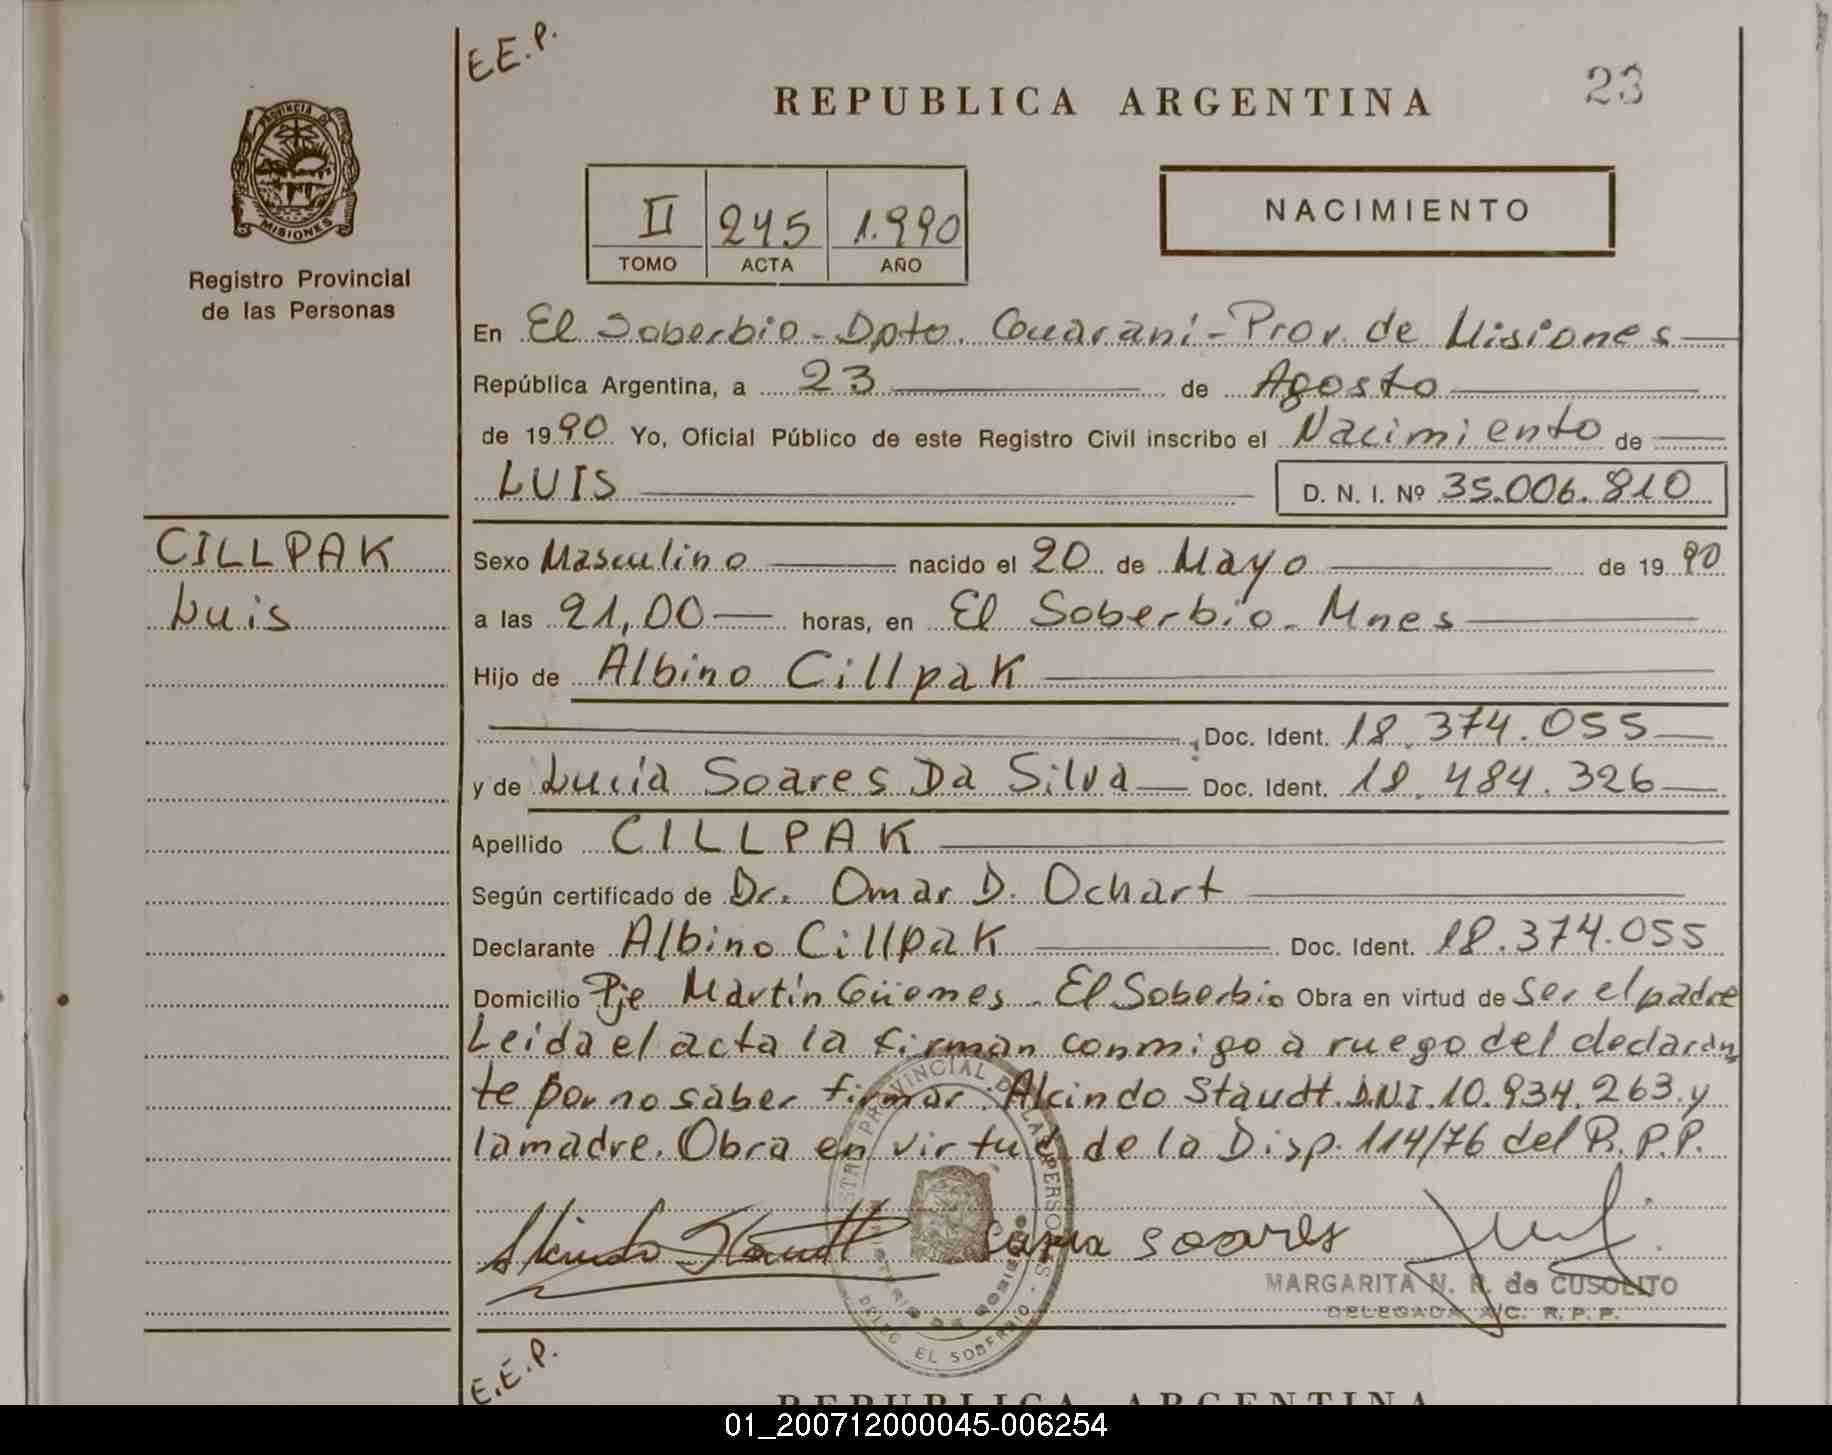 E.E.P.
REPUBLICA ARGENTINA
23
PROVINCIA DE
MISIONES
Registro Provincial
de las Personas
II 245 1.990
TOMO ACTA AÑO
NACIMIENTO
En El Soberbio - Dpto. Guaraní - Prov. de Misiones
República Argentina, a 23 de Agosto
de 1990 Yo, Oficial Público de este Registro Civil inscribo el Nacimiento de
LUIS D. N. I. Nº 35.006.810
CILLPAK
Luis
Sexo Masculino nacido el 20 de Mayo de 19 90
a las 21,00 horas, en El Soberbio - Mnes
Hijo de Albino Cillpak
Doc. Ident. 18.374.055
y de Lucía Soares Da Silva Doc. Ident. 18.484.326
Apellido CILLPAK
Según certificado de Dr. Omar D. Ochart
Declarante Albino Cillpak Doc. Ident. 18.374.055
Domicilio Pje Martín Güemes - El Soberbio Obra en virtud de Ser el padre
Leida el acta la firman conmigo a ruego del declaran
te por no saber firmar. Alcindo Staudt. D.N.I. 10.934.263 y
la madre. Obra en virtud de la Disp. 114/76 del R.P.P.
Alcindo Staudt Soares
MARGARITA N. R. de CUSOLITO
DELEGADA A/C. R. P. P.
PROVINCIAL DE LAS PERSONAS
DELEG. EL SOBERBIO
E.E.P.
REPUBLICA ARGENTINA
01_200712000045-006254